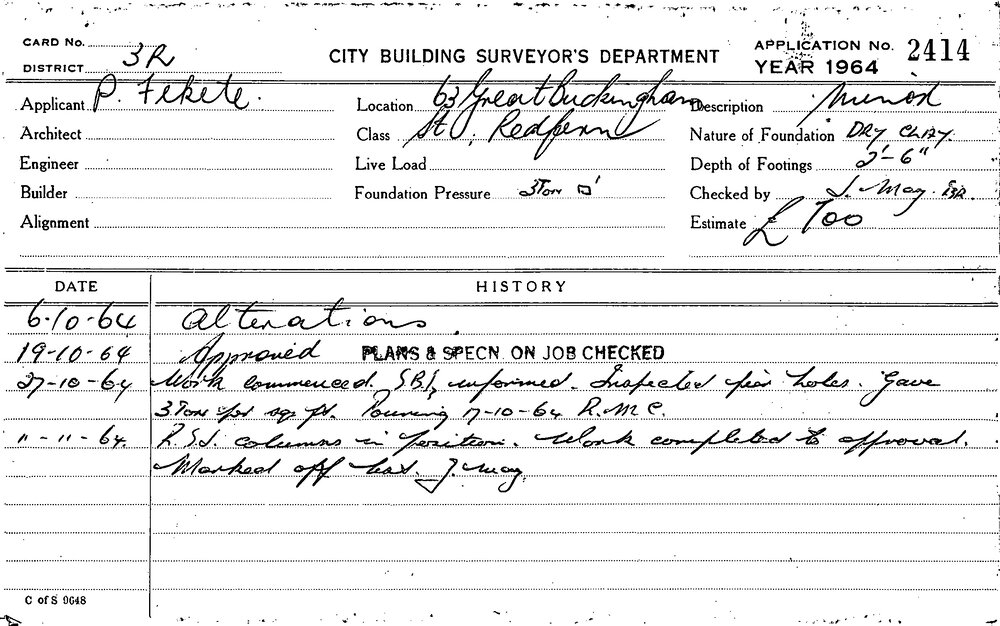 CARD No.
DISTRICT 3R
CITY BUILDING SURVEYOR'S DEPARTMENT
APPLICATION No. 2414
YEAR 1964
Applicant P. Fekete.
Location 63 Great Buckingham
Description Minor
Architect
Class St, Redfern
Nature of Foundation DRY CLAY.
Engineer
Live Load
Depth of Footings 2'-6"
Builder
Foundation Pressure 3 Ton □'
Checked by J. May.
Alignment
Estimate £ 700
DATE HISTORY
6-10-64 Alterations.
19-10-64 Approved PLANS & SPECN. ON JOB CHECKED
27-10-64 Work commenced. informed. Inspected pier holes. Gave
3 Tons per sq ft. Pouring R.M.C.
11-11-64. R.S.J. columns in position. Work completed to approval.
Marked off J. May
C of S 9648